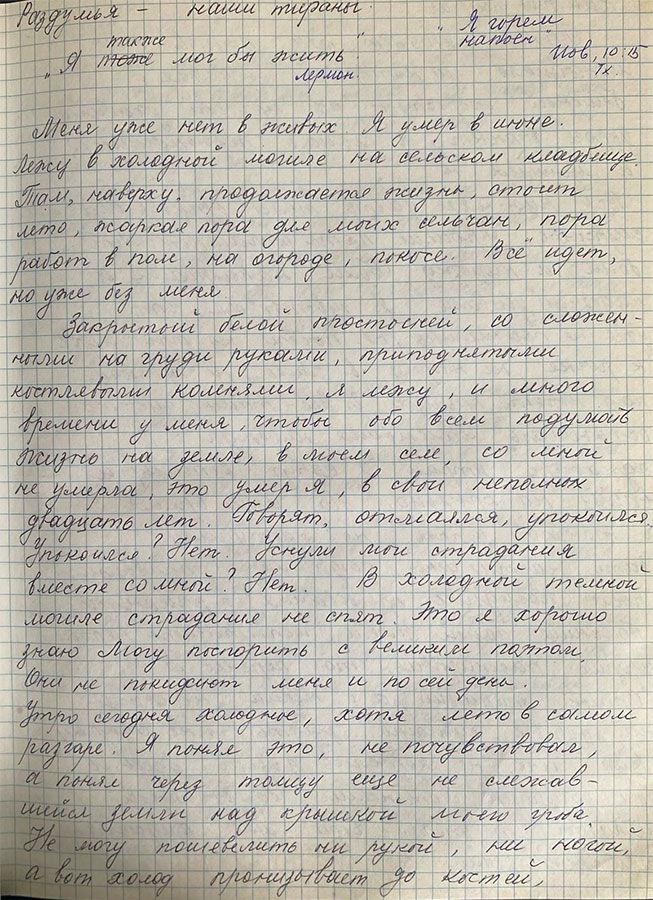 Раздумья – наши тираны.
" Я горем
также " напоен"
" Я тоже мог бы жить " Иов, 10:15
Лермон. Тх.
Меня уже нет в живых. Я умер в июне.
Лежу в холодной могиле на сельском кладбище.
Там, наверху, продолжается жизнь, стоит
лето, жаркая пора для моих сельчан, пора
работ в поле, на огороде, покосе. Всё идет,
но уже без меня
Закрытый белой простыней, со сложен-
ными на груди руками, приподнятыми
костлявыми коленями, я лежу, и много
времени у меня, чтобы обо всем подумать
Жизнь на земле, в моем селе, со мной
не умерла, это умер я, в свои неполных
двадцать лет. Говорят, отмаялся, упокоился.
Упокоился? Нет. Уснули мои страдания
вместе со мной? Нет. В холодной темной
могиле страдания не спят. Это я хорошо
знаю Могу поспорить с великим поэтом.
Они не покидают меня и по сей день.
Утро сегодня холодное, хотя лето в самом
разгаре. Я понял это, не почувствовал,
а понял через толщу еще не слежав-
шейся земли над крышкой моего гроба.
Не могу пошевелить ни рукой, ни ногой,
а вот холод пронизывает до костей,